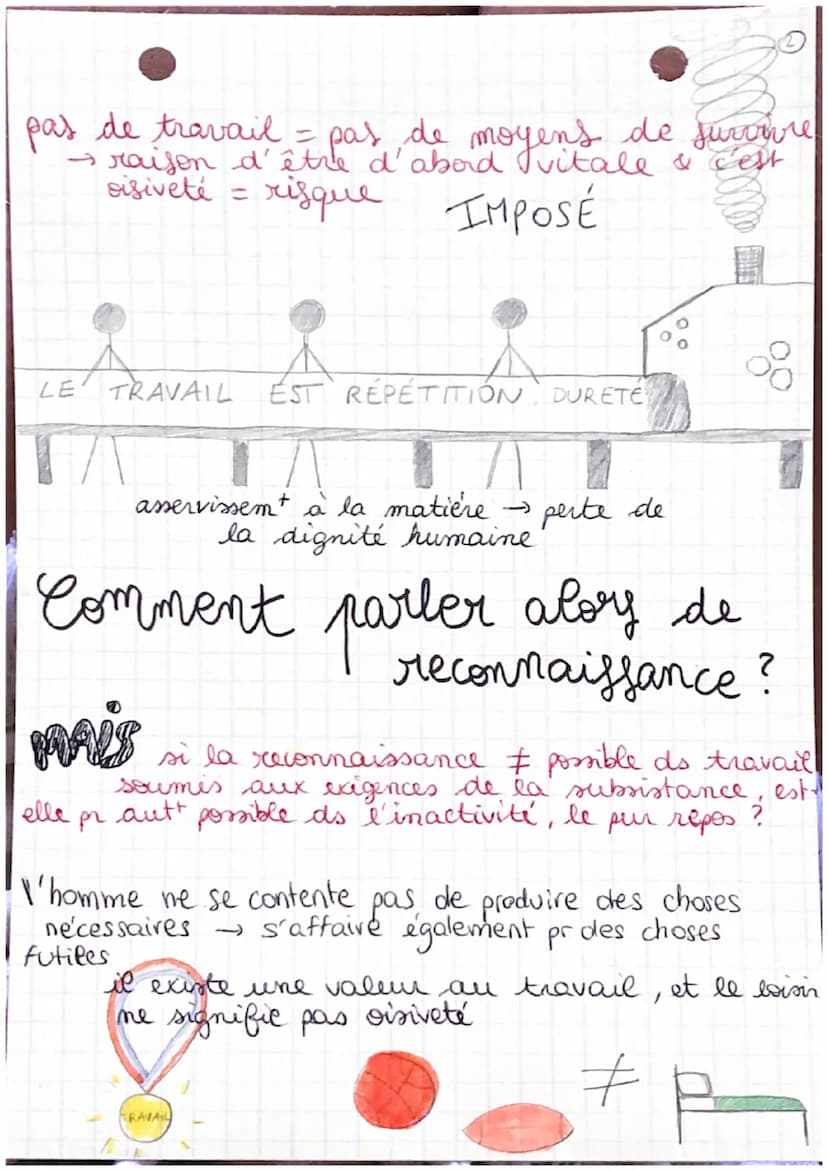 2
pas de travail = pas de moyens de survivre
→ raison d'être d'abord vitale & c'est
oisiveté = risque
IMPOSÉ
LE TRAVAIL EST RÉPÉTITION, DURETÉ
asservissemt à la matière → perte de
la dignité humaine
Comment parler alors de
reconnaissance ?
MAIS si la reconnaissance ≠ possible ds travail
soumis aux exigences de la subsistance, est-
elle pr autt possible ds l'inactivité, le pur repos ?
l'homme ne se contente pas de produire des choses
nécessaires → s'affaire également pr des choses
futiles
il existe une valeur au travail, et le loisir
ne signifie pas oisiveté
TRAVAIL
≠